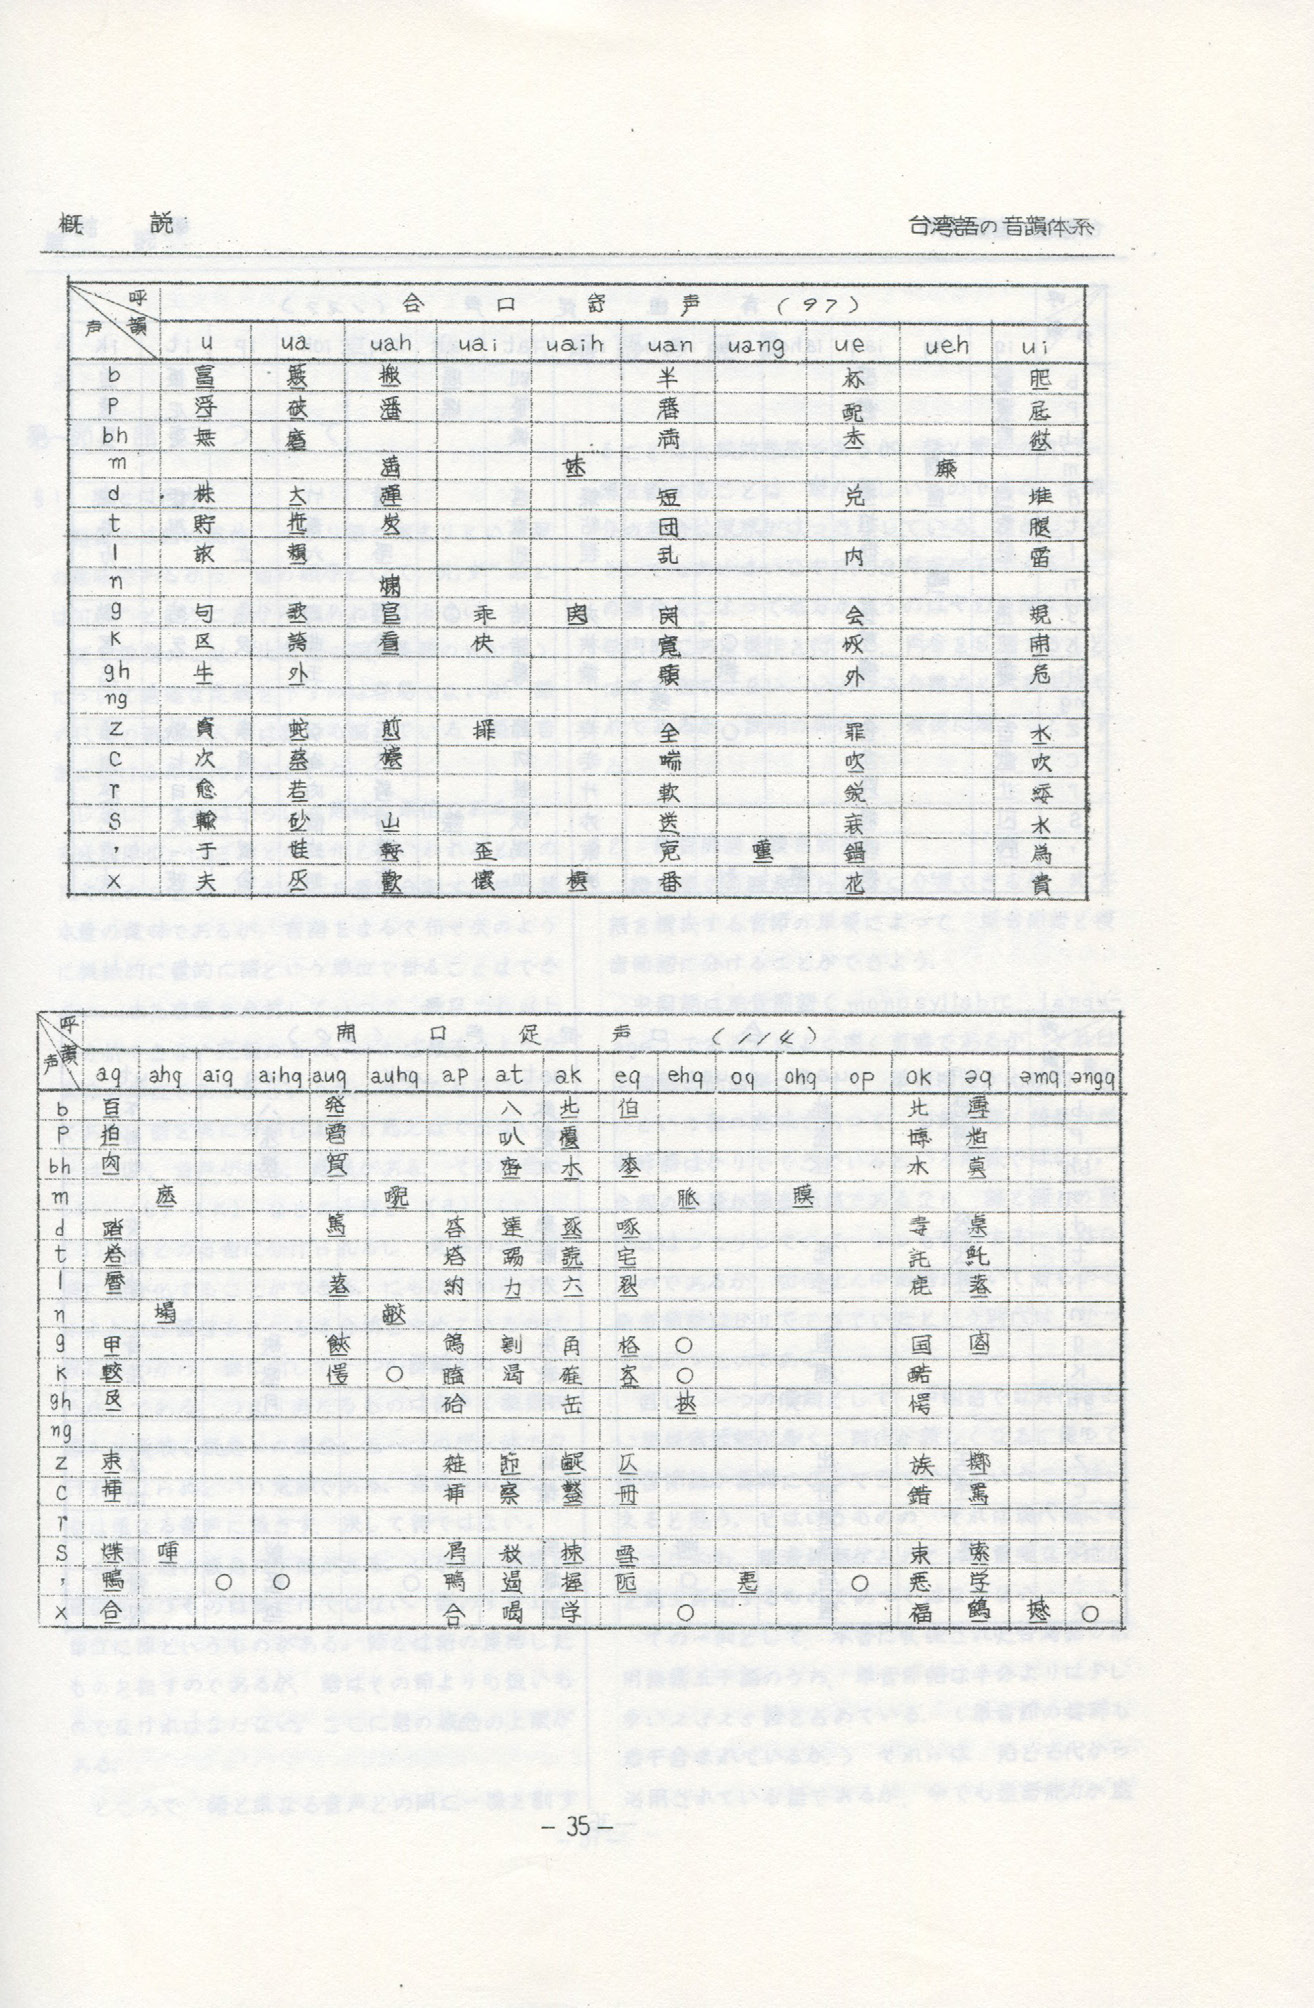 概 説 台湾語の音韻体系
呼 韻 声 合 口 舒 声 (97)
u ua uah uai uaih uan uang ue ueh ui
b 富 簸 搬 半 杯 肥
p 浮 破 潘 潘 配 屁
bh 無 磨 満 未 微
m 満 妹 糜
d 株 大 弾 短 兌 堆
t 貯 拖 炭 団 腿
l 旅 頼 乱 内 雷
n 爛
g 句 歌 官 乖 関 会 規
k 区 誇 看 快 寛
gh 牛 外 願 外 危
ng
z 資 蛇 煎 全 罪 水
c 次 蔡 喘 吹 吹
r 愈 若 軟 鋭 緌
s 輸 砂 山 送 衰 水
' 于 娃 歪 完 鍋 為
x 夫 灰 歓 懐 横 番 花 貴
呼 韻 声 開 口 促 声 (114)
aq ahq aiq aihq auq auhq ap at ak eq ehq oq ohq op ok əq əmq əngq
b 百 発 八 北 伯 北
p 拍 雹 叭 覆 博 粕
bh 肉 貿 密 木 麥 木 莫
m 脈 膜
d 踏 篤 答 達 逐 啄 毒 桌
t 塔 踢 宅 託
l 暦 落 納 力 六 裂 鹿 落
n 塌
g 甲 鋏 鴿 割 角 格 ○ 国
k ○ 瞌 渇 確 客 ○ 酷
gh 岳
ng
z 節 仄 族
c 插 插 察 冊 錯
r
s 煠 屑 殺 雪 束 索
' 鴨 ○ ○ 鴨 遏 握 悪 ○ 悪 学
x 合 合 喝 学 ○ 福 鶴 ○
- 35 -